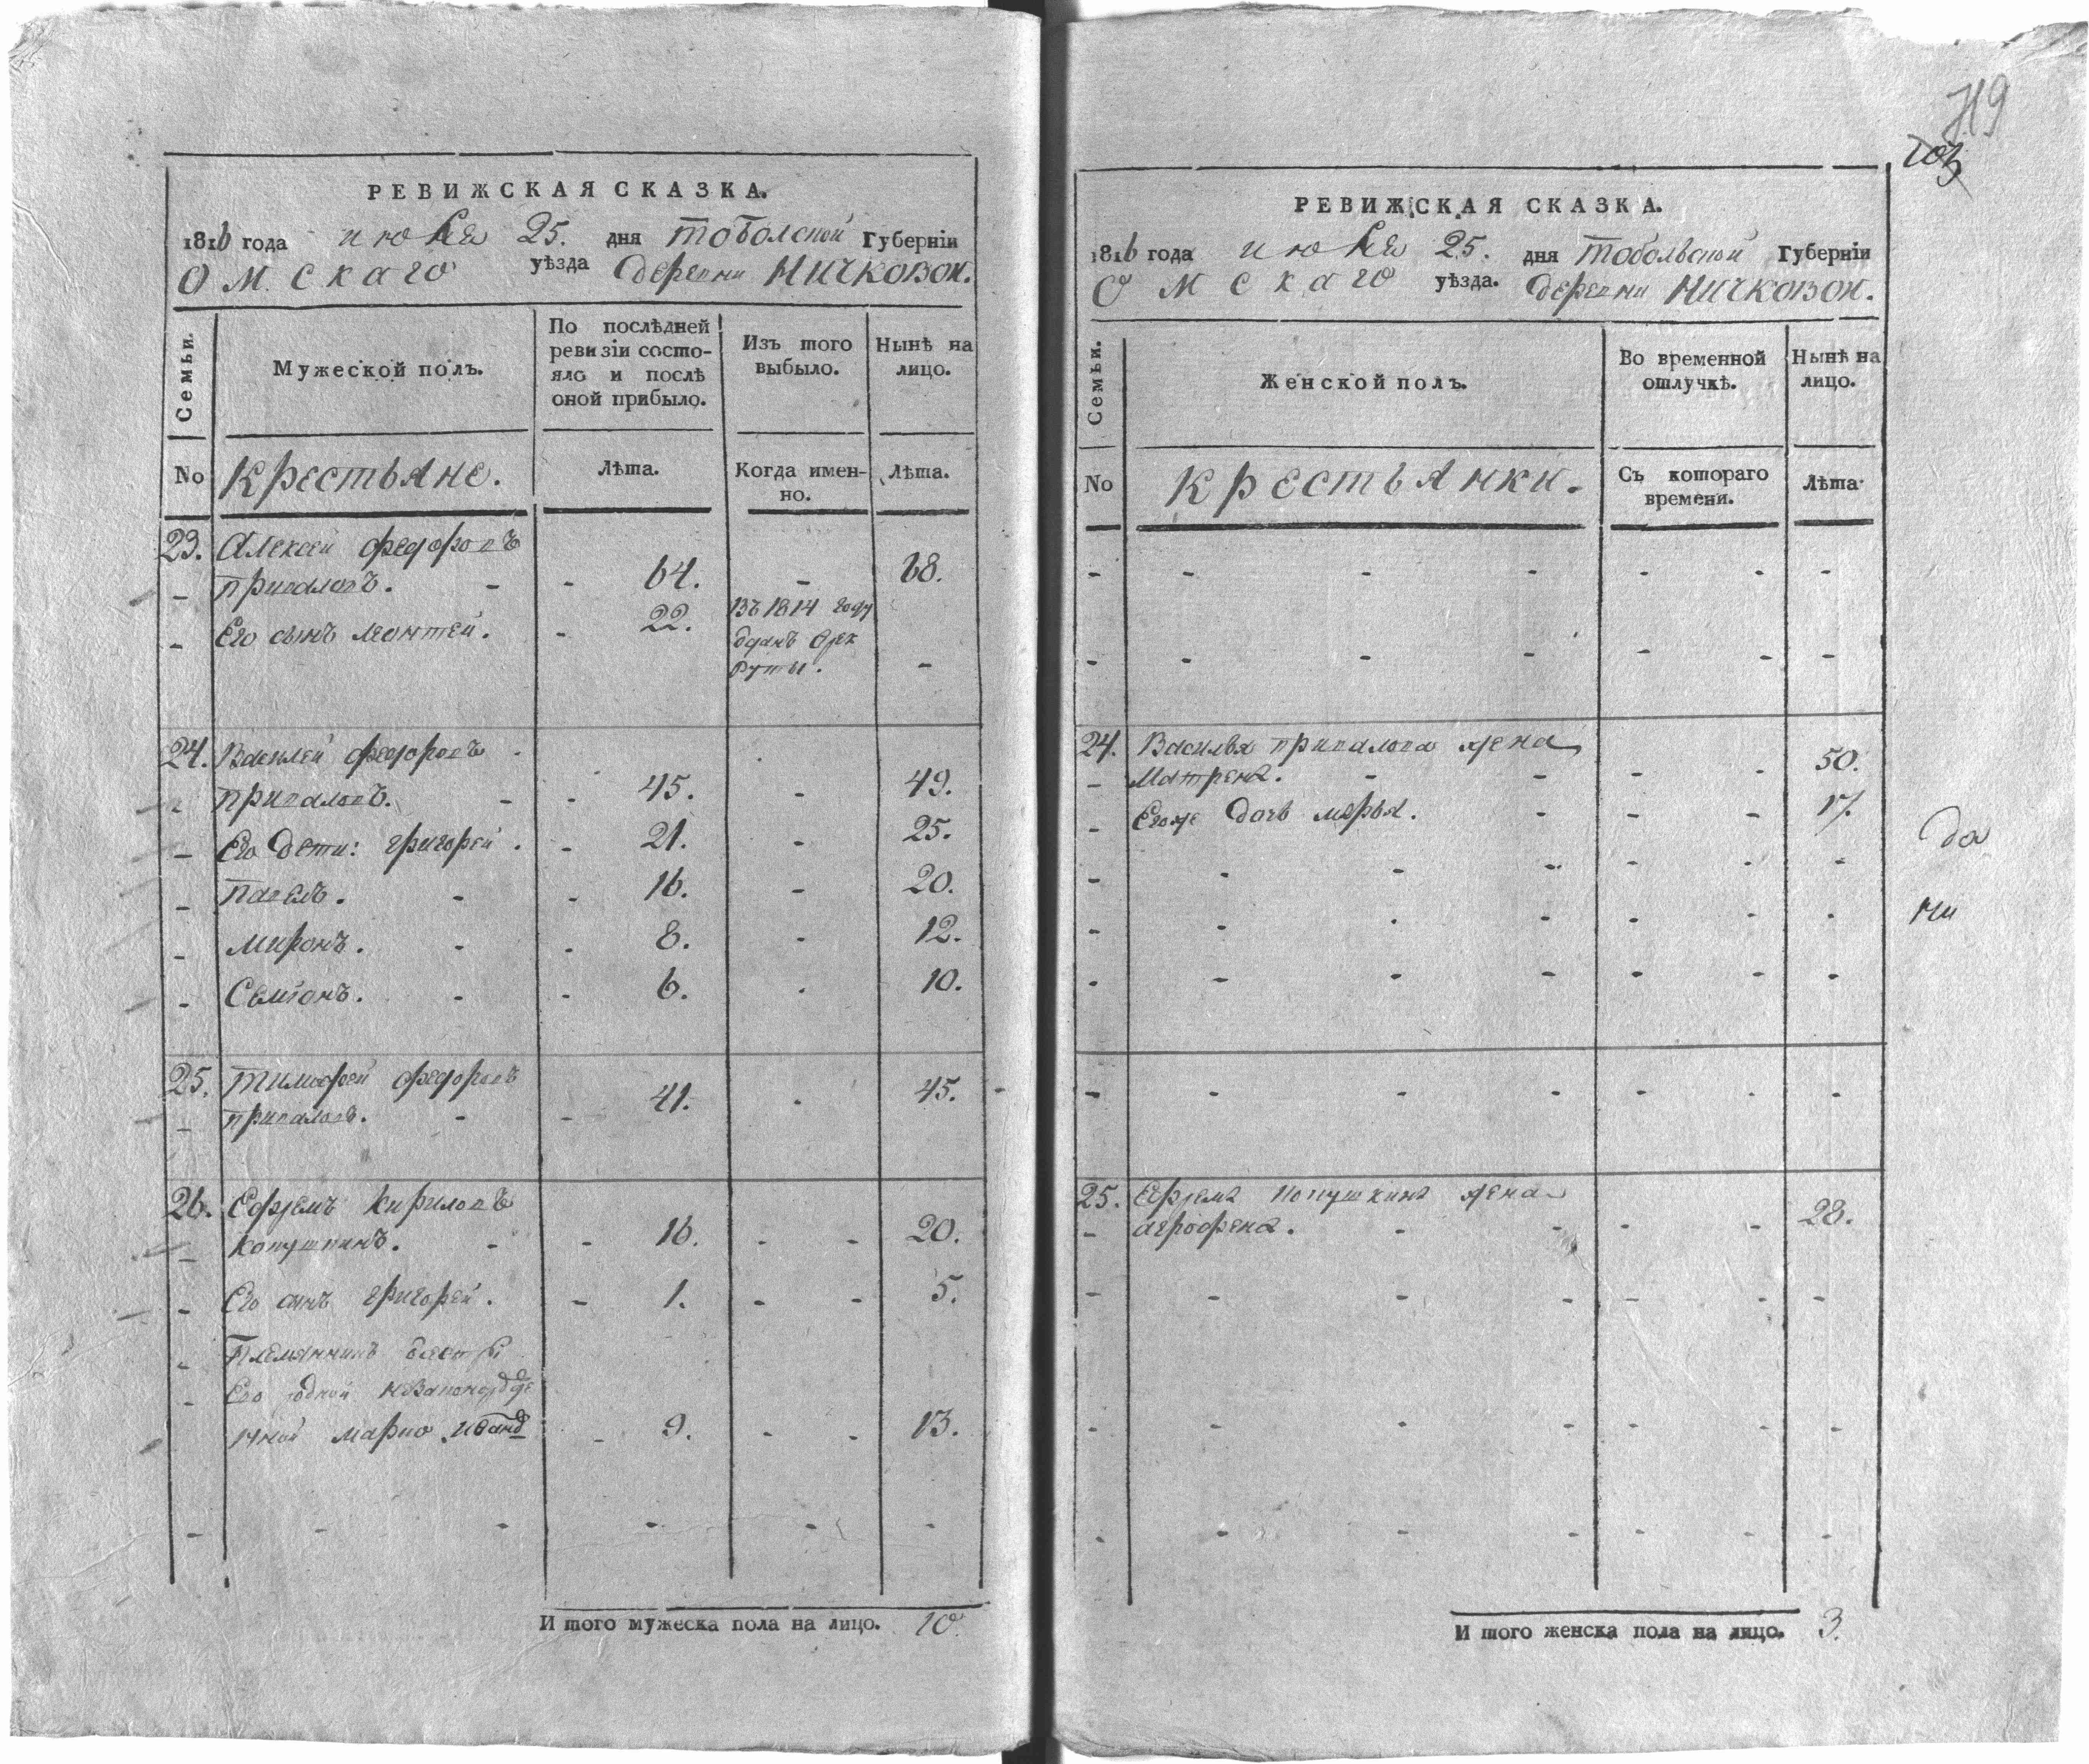 119
103
РЕВИЖСКАЯ СКАЗКА.
1816 года июля 25. дня тоболской Губерніи
Омскаго уѣзда деревни Ничковой.
Семьи.
Мужеской полъ.
По послѣдней ревизіи состояло и послѣ оной прибыло.
Изъ того выбыло.
Нынѣ на лицо.
No Крестьяне.
Лѣта.
Когда именно.
Лѣта.
23. Алексей федоровъ
– приваловъ. - - 64. - 68.
– Его сынъ леонтей. - 22. Въ 1814 году
отданъ врек
руты. -
24. Василей федоровъ
приваловъ. - - 45. - 49.
– Его дети: григорей. - 21. - 25.
– Павелъ. - - 16. - 20.
– миронъ. - - 8. - 12.
– Семіонъ. - - 6. - 10.
25. тимофей федоровъ
– приваловъ. - - 41. - 45.
26. Ефремъ Кириловъ
– - - 16. - - 20.
– Его сынъ григорей. - 1. - - 5.
– Племянникъ
– Его
марко - 9. - - 13.
И того мужеска пола на лицо. 10.
РЕВИЖСКАЯ СКАЗКА.
1816 года июля 25. дня тобольской Губерніи
Омскаго уѣзда. деревни Ничковой.
Семьи.
Женской полъ.
Во временной отлучкѣ.
Нынѣ на лицо.
No Крестьянки.
Съ котораго времени.
Лѣта.
24. Василья привалова жена
– Матрена. - - - - 50.
– Егоже дочь марья. - - - 17.
да
чи
25. Ефрема жена
– - - - - 28.
И того женска пола на лицо. 3.